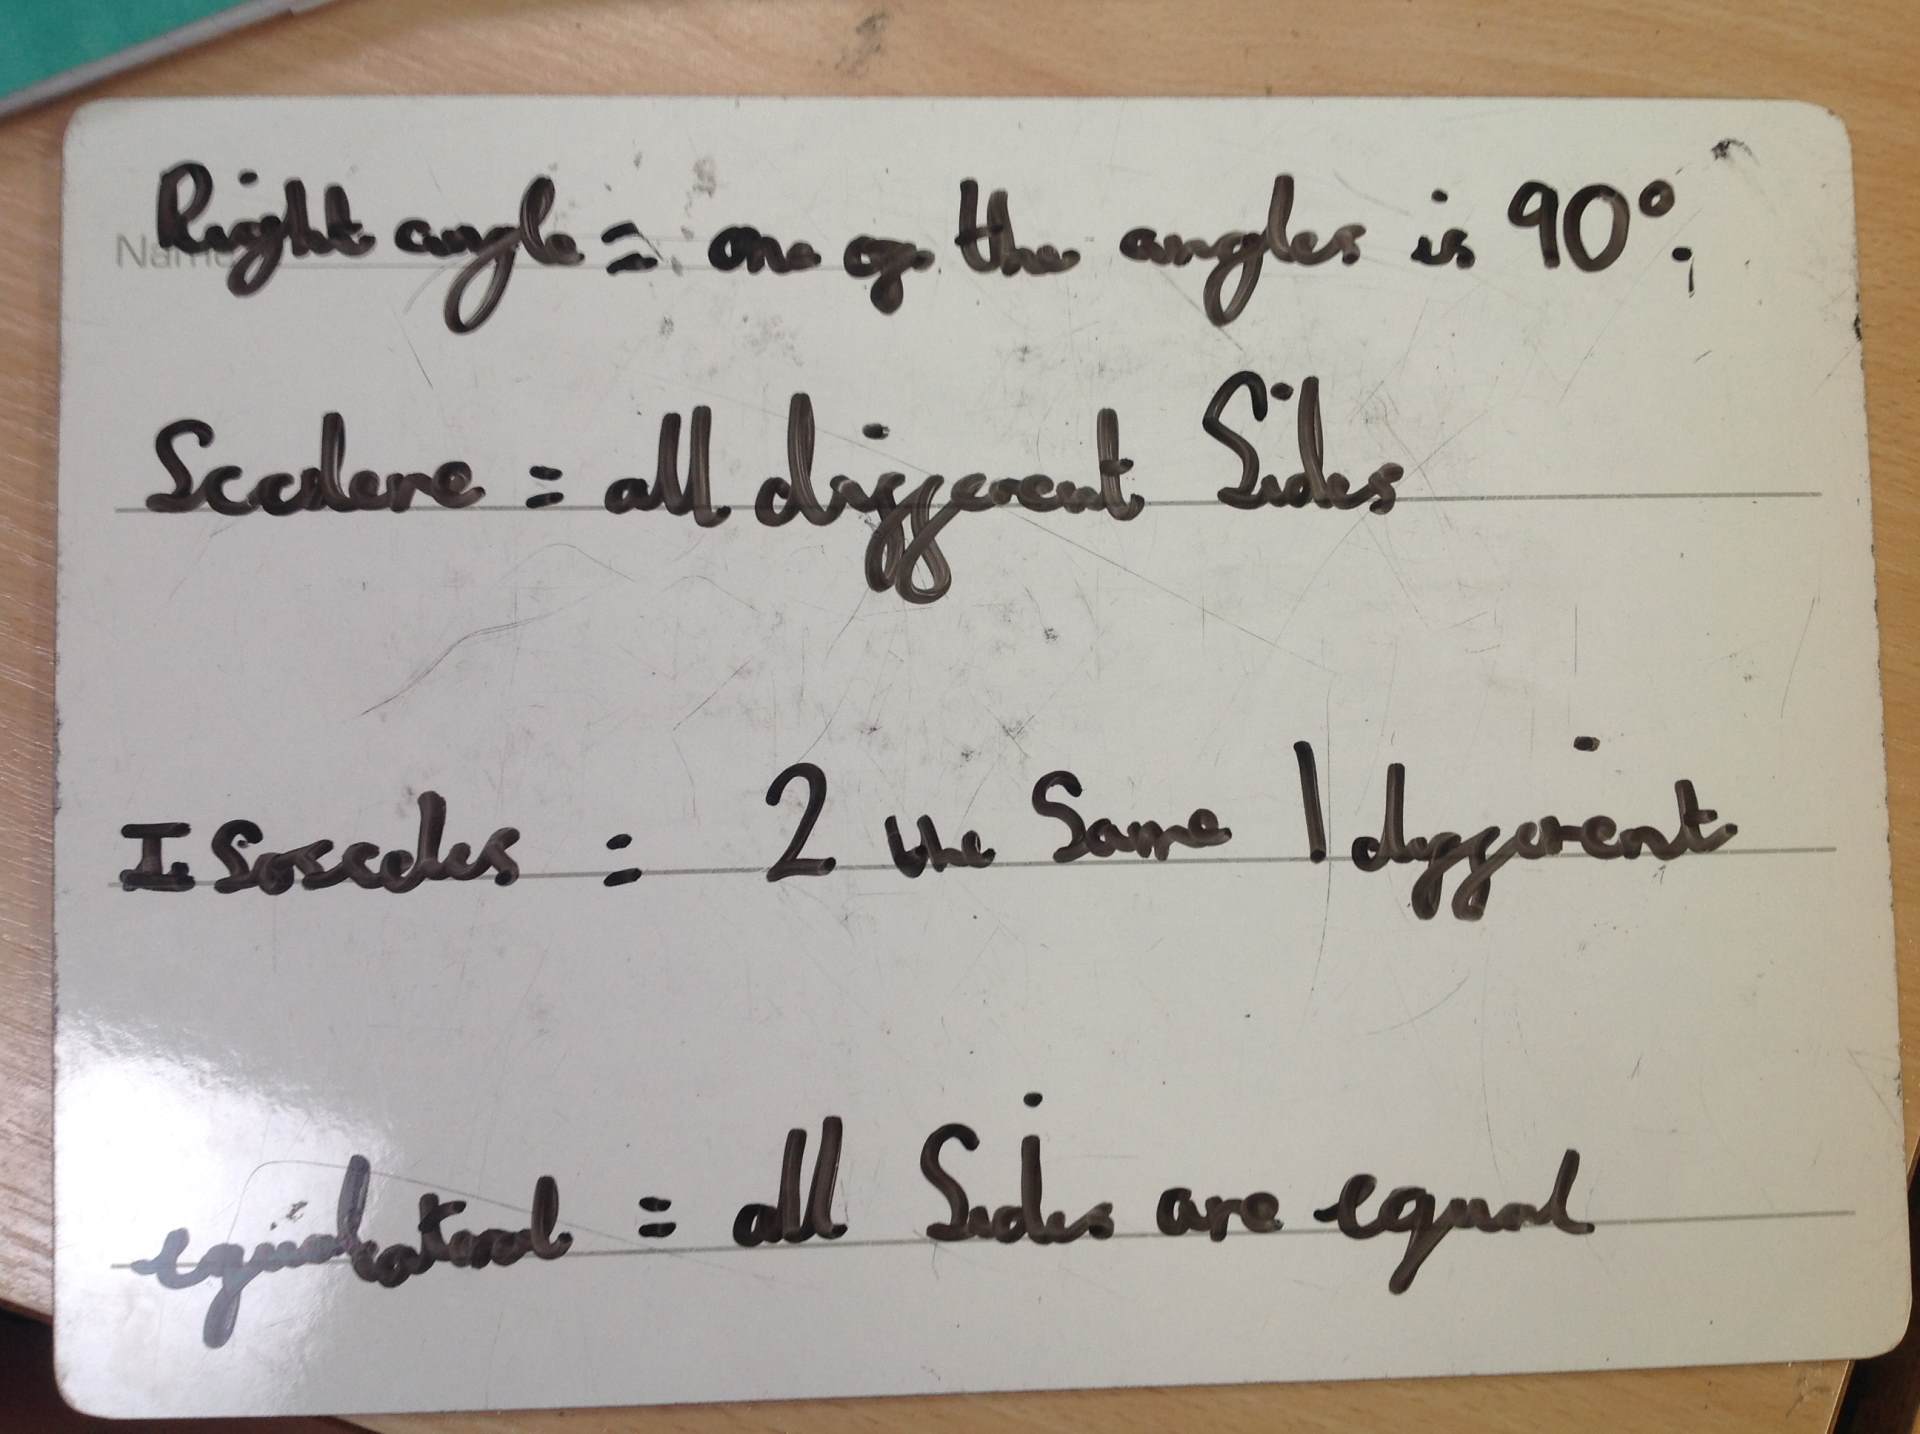 Name:
Right angle = one of the angles is 90°.
Scalene = all different Sides
Isosceles = 2 the Same 1 different
equilateral = all Sides are equal